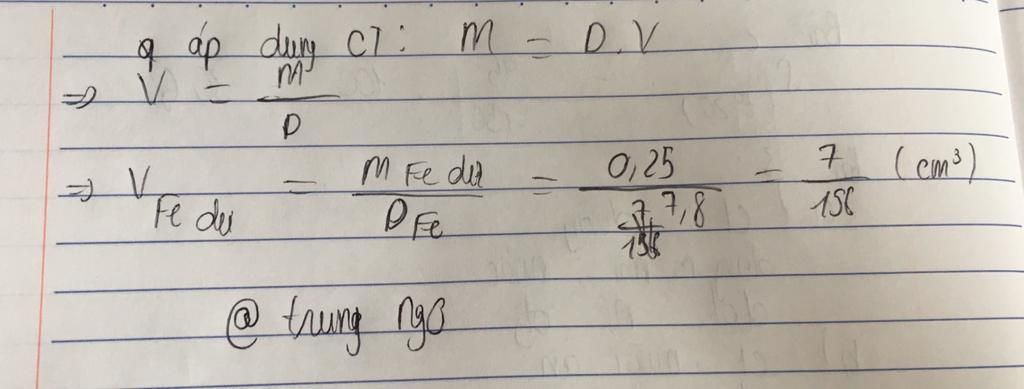 áp dụng CT: m = D.V
⇒ V = m / D
⇒ V Fe dư = m Fe dư / D Fe = 0,25 / 7,8 = 7 / 156 (cm³)
@ trung ngo